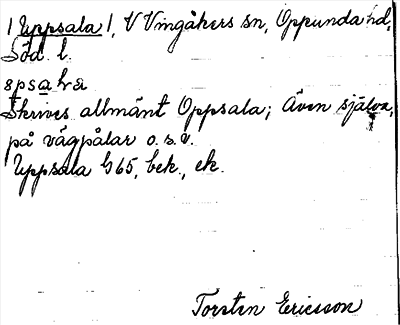 | Uppsala |, V Vingåkers sn, Oppunda hd,
Söd. l.
Skrives allmänt Oppsala; Även själva,
på vägpålar o.s.v.
Uppsala G65, bek., ek.
Torsten Ericsson